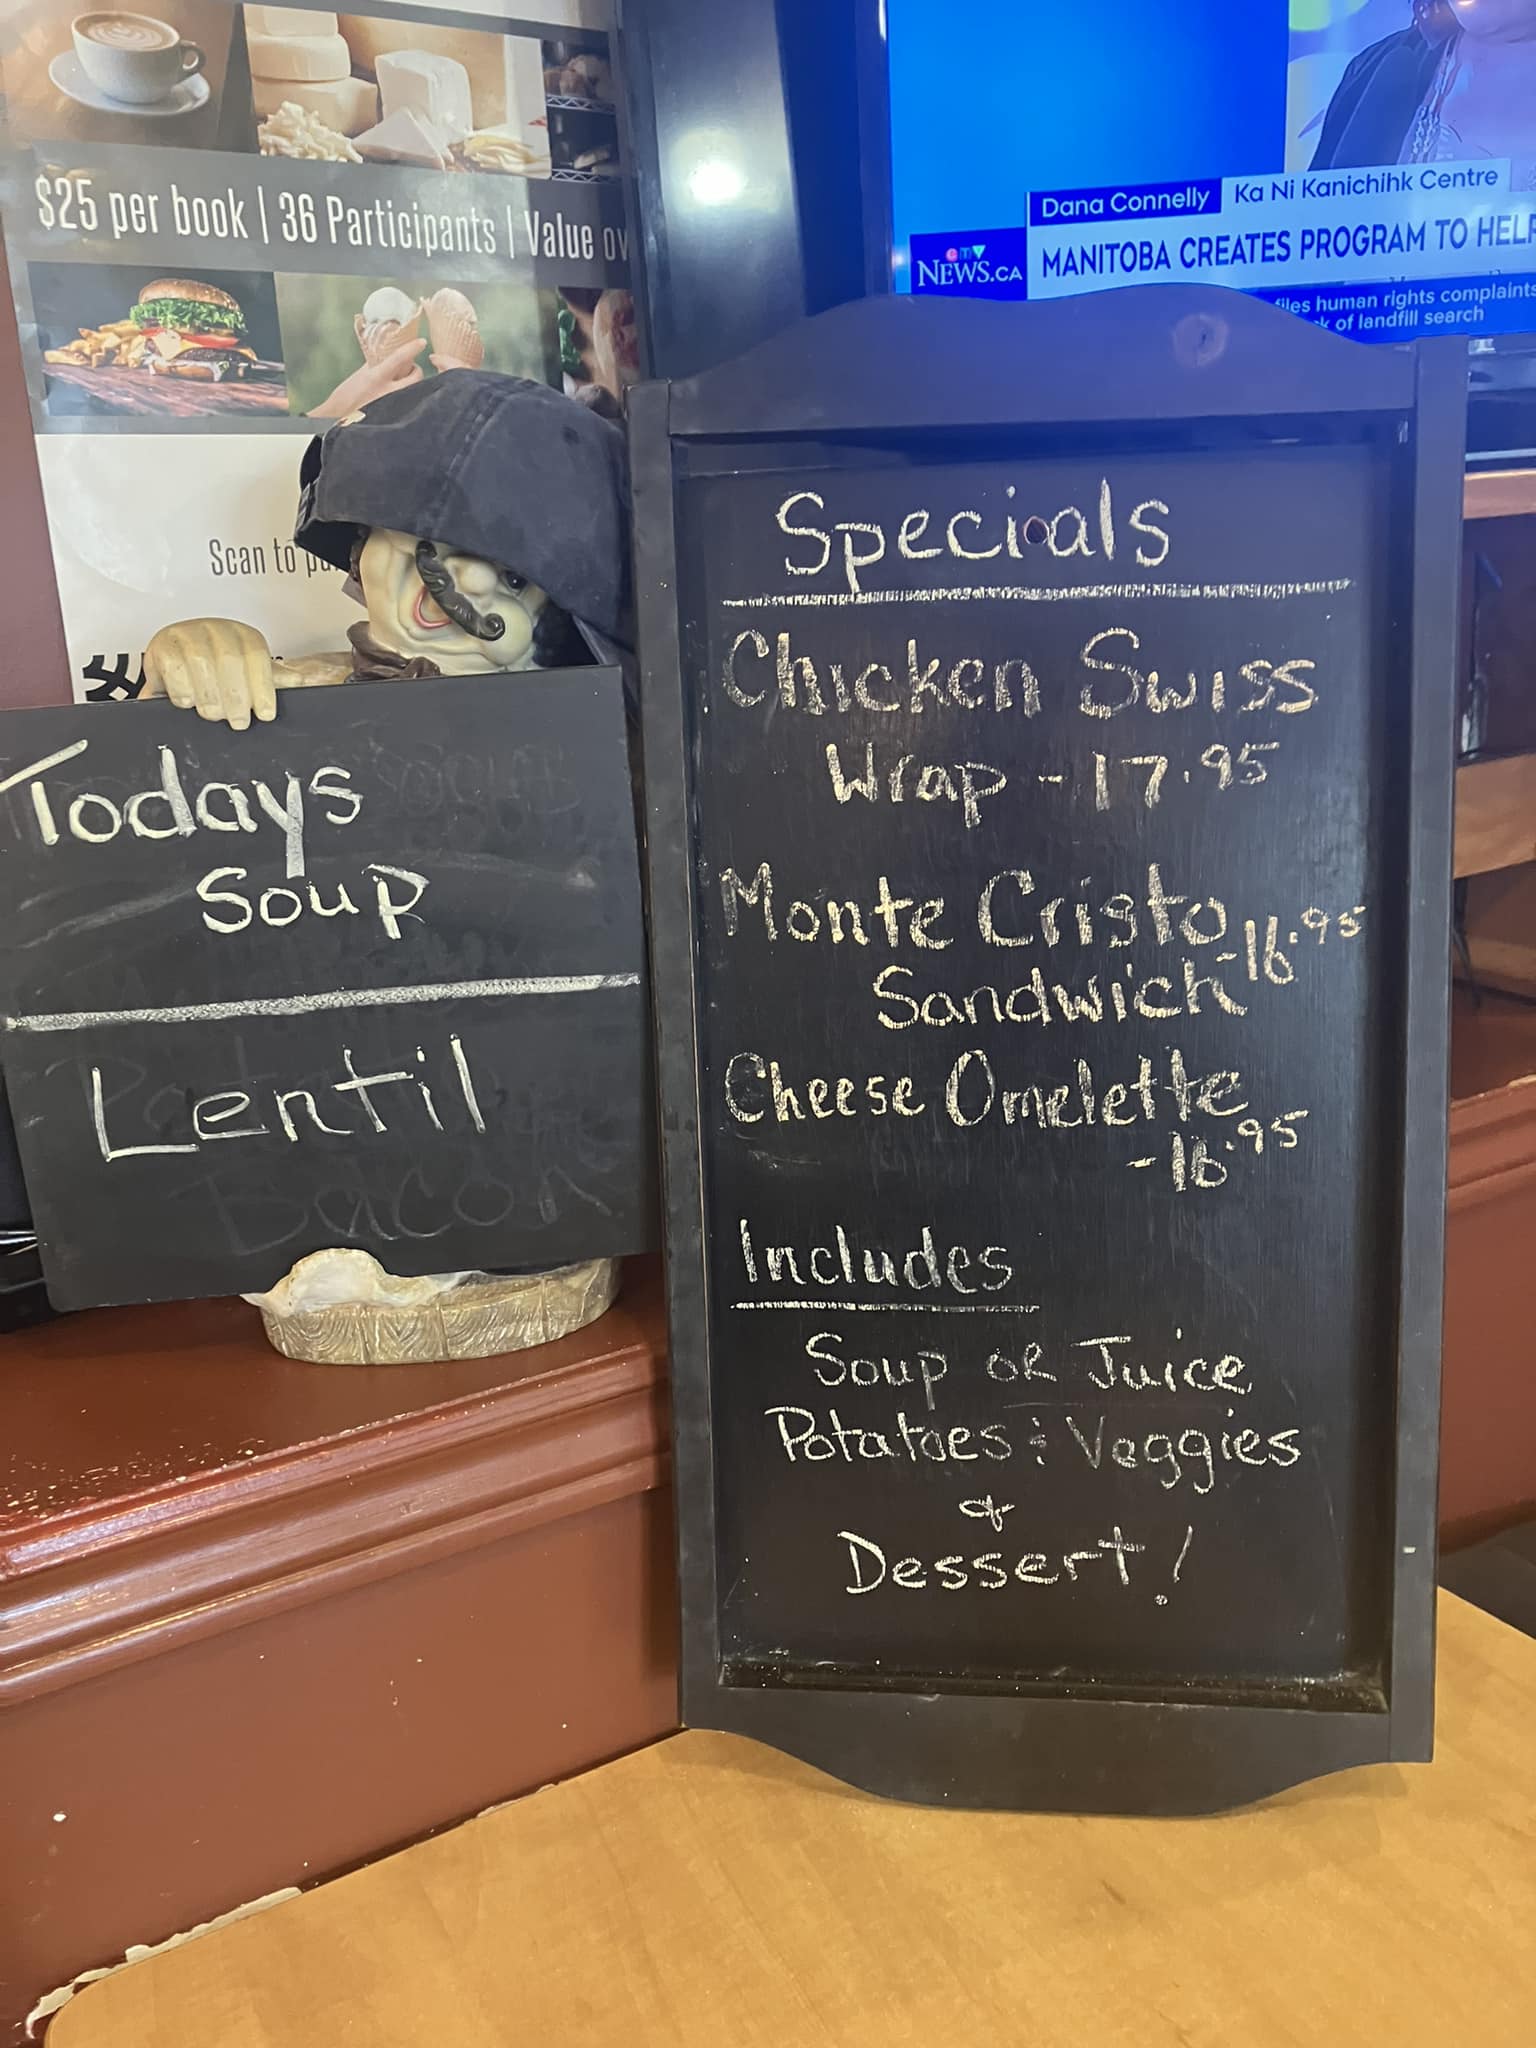 $25 per book | 36 Participants | Value
Scan to
Dana Connelly
Ka Ni Kanichihk Centre
CTV NEWS.CA
MANITOBA CREATES PROGRAM TO HELP
files human rights complaints
of landfill search
Todays
Soup
Lentil
Bacon
Specials
Chicken Swiss
Wrap - 17.95
Monte Cristo
Sandwich - 16.95
Cheese Omelette
- 16.95
Includes
Soup or Juice
Potatoes & Veggies
&
Dessert!